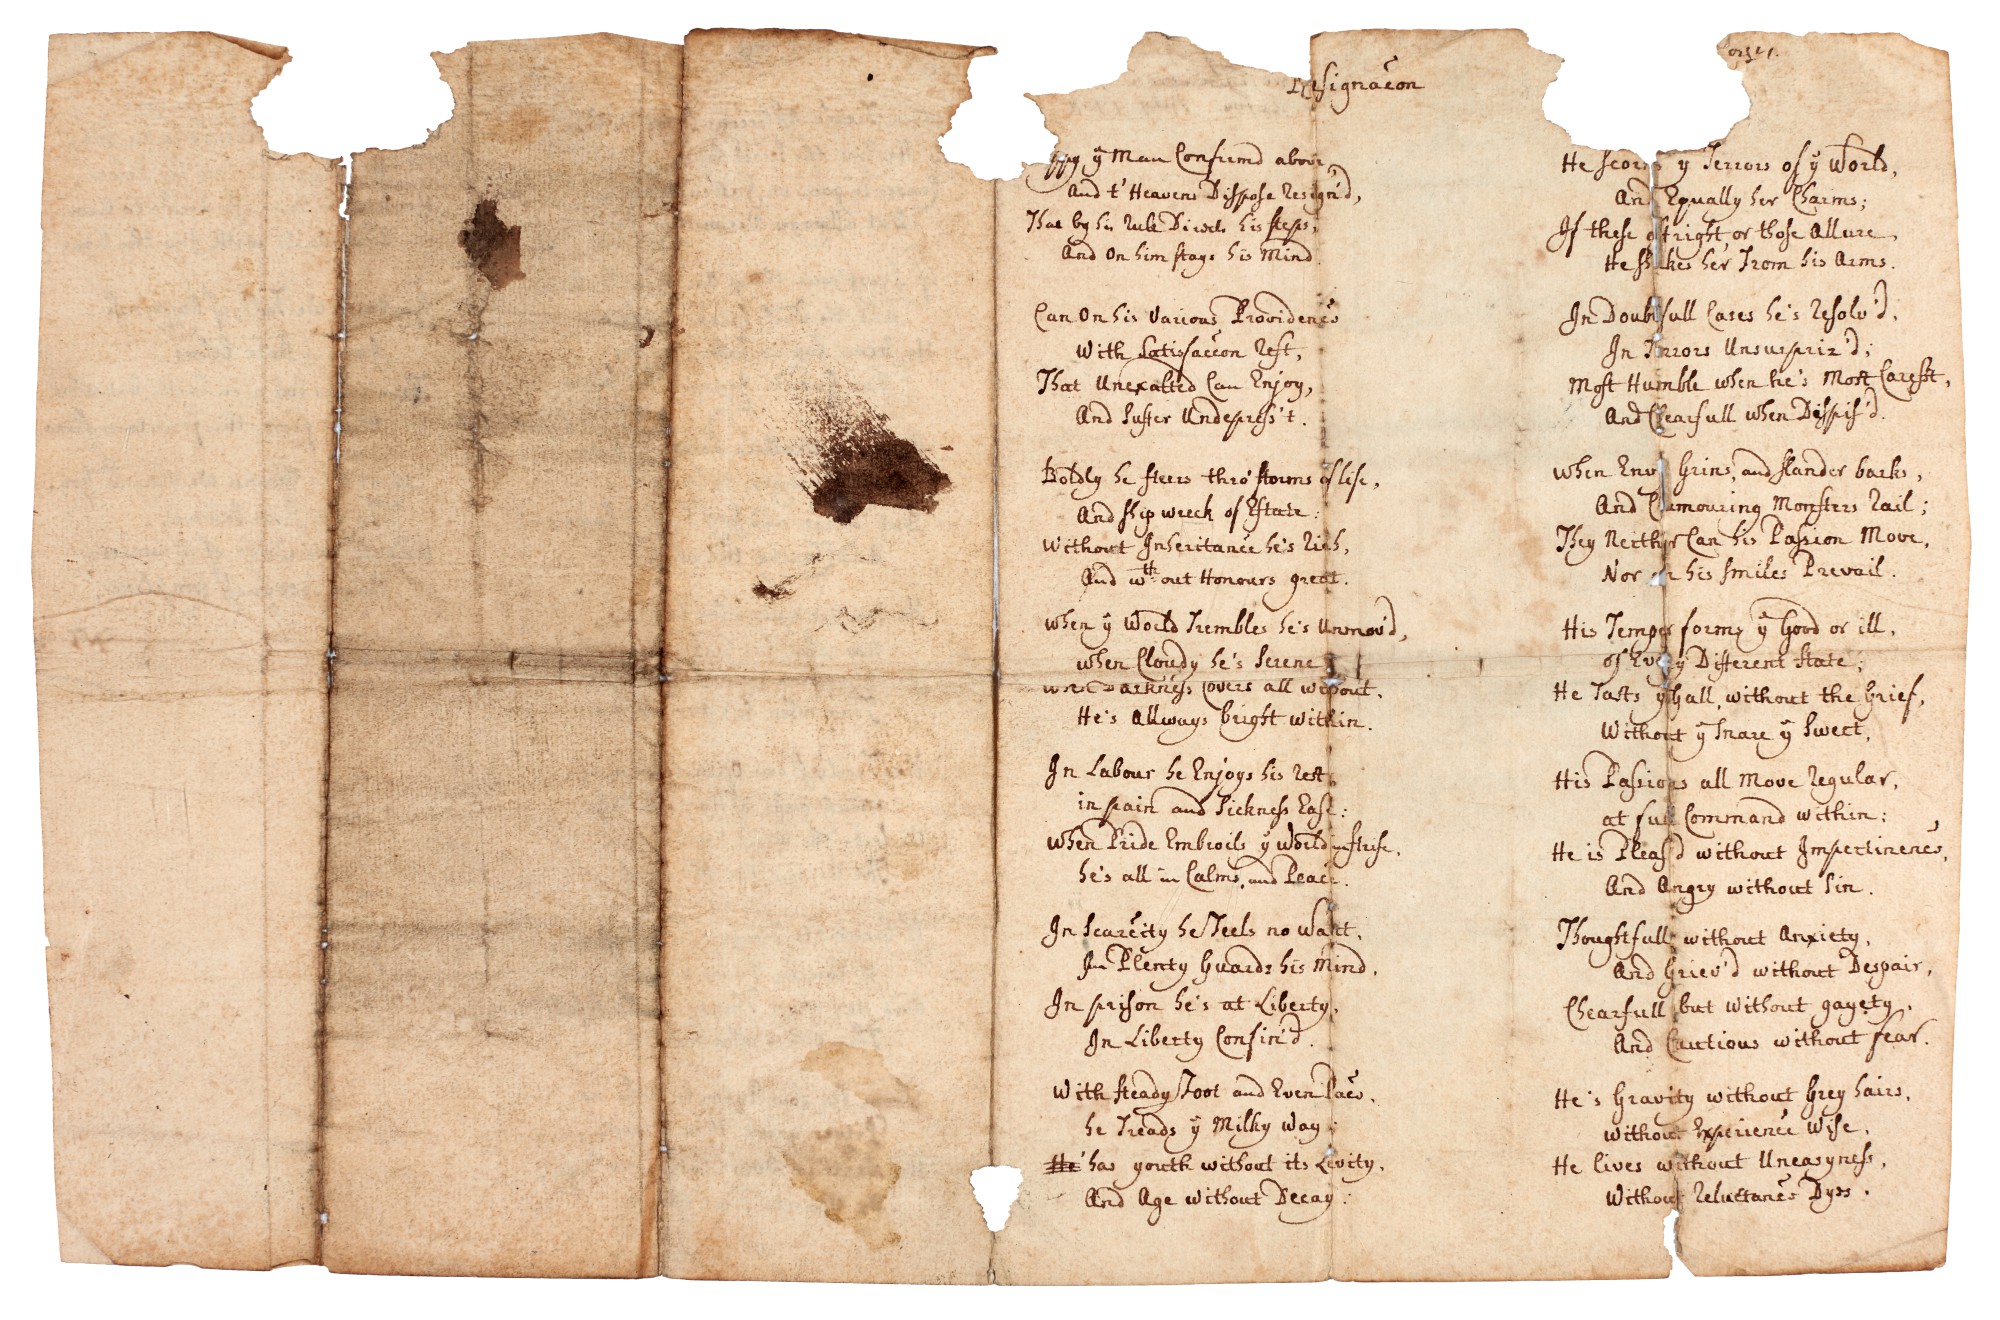 Resignac̃on
ppy ÿ Man Confirmd above
And t' Heavens Dispose Resign'd,
That by his Rule Directs his steps,
And On him stays his Mind.
Can On his Various Providenc̃s
With Satisfac̃con Rest,
That Unexalted Can Enjoy,
And Suffer Undepress't.
Boldly he steers thrô storms of life,
And ship wreck of Estate:
Without Inheritanc̃e he's Rich,
And wth:out Honours great.
when ÿ World Trembles he's Unmov'd,
when Cloudy he's Serene
when Darkness Covers all without,
He's Allways bright within.
In Labour he Enjoys his Rest,
in pain and Sickness Ease:
when Pride Embroils ÿ World in strife,
he's all in Calms, and Peace.
In Scarc̃ity he Feels no Want,
In Plenty Guards his Mind,
In prison he's at Liberty,
In Liberty Confin'd.
With steady Foot and Even Pac̃e,
he Treads ÿ Milky Way;
He' has youth without its Levity,
And Age without Decay:
He scorns ÿ Terrors of ÿ World,
And Equally her Charms;
If these affright, or those Allure,
He shakes her From his Arms.
In Doubtfull Cases he's Resolv'd,
In Terrors Unsurpriz'd;
Most Humble when he's Most Caresst,
And Chearfull when Dispis'd.
when Envy Grins, and slander barks,
And Clamouring Monsters Rail;
They Neither Can his Passion Move,
Nor his smiles Prevail.
His Temper forms ÿ Good or ill,
of Every Different State;
He Tasts ÿ Gall, without the Grief,
Without ÿ Snare ÿ Sweet,
His Passions all Move Regular,
at full Command within;
He is Pleas'd without Impertinenc̃e,
And Angry without Sin.
Thoughtfull without Anxiety,
And Griev'd without Despair,
Chearfull but without gayety,
And Cautious without fear.
He's Gravity without Grey hairs,
without Experienc̃e Wise,
He lives without Uneasyness,
Without Reluctanc̃e Dyes.